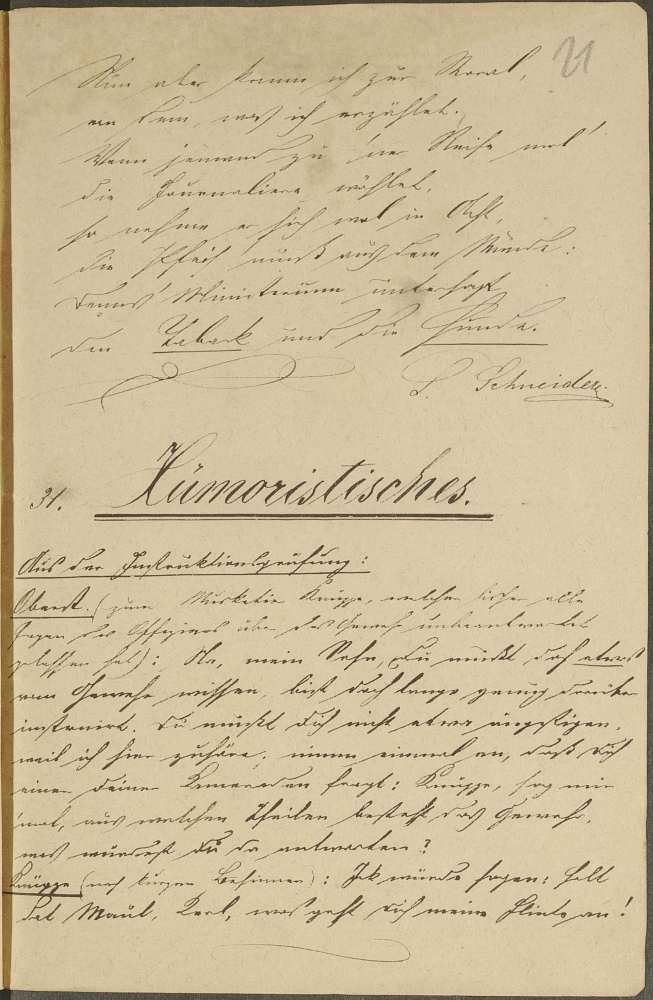 21
Nun aber komm ich zur Moral,
von dem, was ich erzählet.
Wenn jemand zu 'ner Reise mal
die Journaliere wählet,
so nehme er sich wol in Acht,
die Pfeif' muß aus dem Munde:
Denn's Ministerium untersagt
den Taback und die Hunde.
L. Schneider.
31. Humoristisches.
Aus der Instruktionsprüfung:
Oberst. (zum Musketier Knüppe, welcher bisher alle
Fragen des Offiziers über das Gewehr unbeantwortet
gelassen hat): Na, mein Sohn, Du mußt doch etwas
vom Gewehr wissen, bist doch lange genug darüber
instruirt. Du mußt Dich nicht etwa ängstigen,
weil ich hier zuhöre; nimm einmal an, daß Dich
einer Deiner Kameraden fragt: Knüppe, sag mir
'mal, aus welchen Theilen besteht das Gewehr,
was würdest Du da antworten?
Knüppe (nach kurzem Besinnen): Ick würde sagen: Halt
det Maul, Kerl, was geht Dich meine Flinte an!